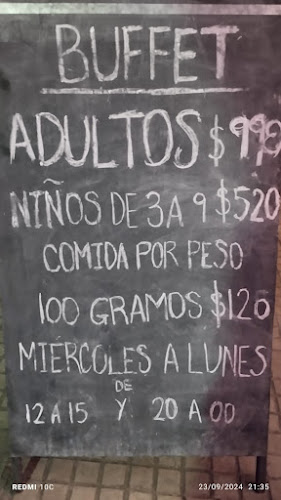 BUFFET
ADULTOS $990
NIÑOS DE 3 A 9 $520
COMIDA POR PESO
100 GRAMOS $120
MIERCOLES A LUNES
DE
12 A 15 Y 20 A 00
REDMI 10C
23/09/2024 21:35